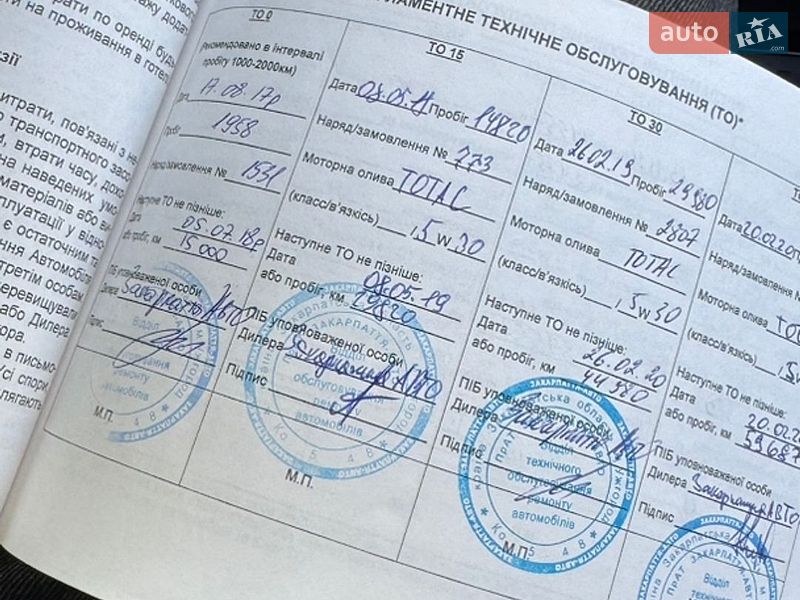 auto RIA .com
РЛАМЕНТНЕ ТЕХНІЧНЕ ОБСЛУГОВУВАННЯ (ТО)*
трати по оренді
ти на проживання в готел
зії
итрати, пов'язані з
о транспортного
и, втрати часу,
на наведених
матеріалів або
плуатації у відно
є остаточним
ння Автомобіля
третім особам
перевищували
або Дилера
ора.
в письмо
Усі спори
лягають
ТО 0
Рекомендовано в інтервалі
пробігу 1000-2000км)
Дата 17.08.17р
Пробіг 1958
Наряд/замовлення № 1531
Наступне ТО не пізніше:
Дата 05.07.18р
або пробіг, км 15 000
ПІБ уповноваженої особи
Дилера Закарпаття Авто
Підпис
М.П.
Відділ
ремонту
автомобілів
ТО 15
Дата 08.05.18 Пробіг 14820
Наряд/замовлення № 773
Моторна олива ТОТАС
(класс/в'язкість) , 5 W 30
Наступне ТО не пізніше:
Дата 08.05.19
або пробіг, км 29820
ПІБ уповноваженої особи
Дилера Закарпаття АВТО
Підпис
М.П.
ЗАКАРПАТТЯ-АВТО
Відділ
обслуговування
ремонту
автомобілів
ТО 30
Дата 26.02.19 Пробіг 29980
Наряд/замовлення № 2807
Моторна олива ТОТАС
(класс/в'язкість) , 5 W 30
Наступне ТО не пізніше:
Дата 26.02.20
або пробіг, км 44980
ПІБ уповноваженої особи
Дилера Закарпаття Авто
Підпис
М.П.
ЗАКАРПАТТЯ-АВТО
Відділ
технічного
обслуговування
ремонту
автомобілів
Дата 20.02.20
Наряд/замовлення
Моторна олива
(класс/в'язкість) , 5
Наступне ТО не пізніше:
Дата
або пробіг, км 59687
ПІБ уповноваженої особи
Дилера Закарпаття АВТО
Підпис
ЗАКАРПАТТЯ-АВТО
ПрАТ ЗАКАРПАТТЯ
Відділ